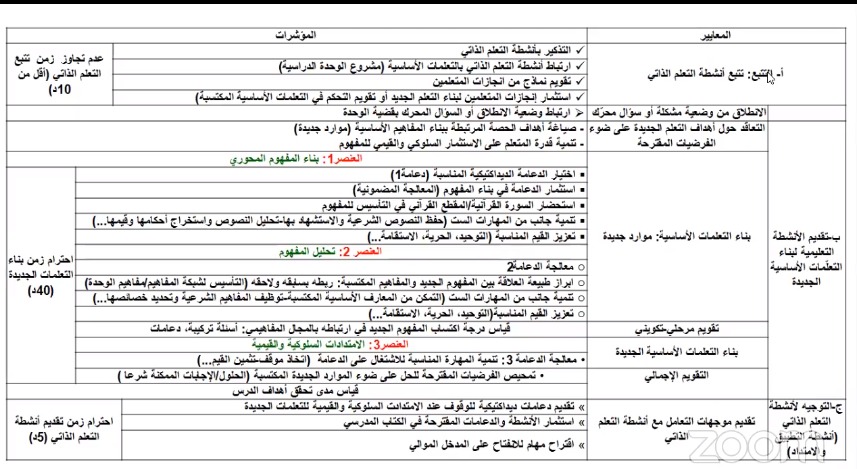 المعايير
المؤشرات
أ- التتبع: تتبع أنشطة التعلم الذاتي
✓ التذكير بأنشطة التعلم الذاتي
✓ ارتباط أنشطة التعلم الذاتي بالتعلمات الأساسية (مشروع الوحدة الدراسية)
✓ تقويم نماذج من انجازات المتعلمين
✓ استثمار إنجازات المتعلمين لبناء التعلم الجديد أو تقويم التحكم في التعلمات الأساسية المكتسبة)
عدم تجاوز زمن تتبع
التعلم الذاتي (أقل من
10د)
ب-تقديم الأنشطة
التعليمية لبناء
التعلّمات الأساسية
الجديدة
الانطلاق من وضعية مشكلة أو سؤال محرّك
➢ ارتباط وضعية الانطلاق أو السؤال المحرك بقضية الوحدة
التعاقد حول أهداف التعلم الجديدة على ضوء
الفرضيات المقترحة
- صياغة أهداف الحصة المرتبطة ببناء المفاهيم الأساسية (موارد جديدة)
- تنمية قدرة المتعلم على الاستثمار السلوكي والقيمي للمفهوم
بناء التعلمات الأساسية: موارد جديدة
العنصر1: بناء المفهوم المحوري
▪ اختيار الدعامة الديداكتيكية المناسبة (دعامة1)
▪ استثمار الدعامة في بناء المفهوم (المعالجة المضمونية)
▪ استحضار السورة القرآنية/المقطع القرآني في التأسيس للمفهوم
▪ تنمية جانب من المهارات الست (حفظ النصوص الشرعية والاستشهاد بها-تحليل النصوص واستخراج أحكامها وقيمها...)
▪ تعزيز القيم المناسبة (التوحيد، الحرية، الاستقامة...)
العنصر 2: تحليل المفهوم
○ معالجة الدعامة2
○ ابراز طبيعة العلاقة بين المفهوم الجديد والمفاهيم المكتسبة: ربطه بسابقه ولاحقه (التأسيس لشبكة المفاهيم/مفاهيم الوحدة)
○ تنمية جانب من المهارات الست (التمكن من المعارف الأساسية المكتسبة-توظيف المفاهيم الشرعية وتحديد خصائصها...)
○ تعزيز القيم المناسبة(التوحيد، الحرية، الاستقامة...)
احترام زمن بناء
التعلمات الجديدة
(40د)
تقويم مرحلي-تكويني
قياس درجة اكتساب المفهوم الجديد في ارتباطه بالمجال المفاهيمي: أسئلة تركيبة، دعامات
بناء التعلمات الأساسية الجديدة
العنصر3: الامتدادات السلوكية والقيمية
• معالجة الدعامة 3: تنمية المهارة المناسبة للاشتغال على الدعامة (اتخاذ موقف-تثمين القيم...)
التقويم الإجمالي
• تمحيص الفرضيات المقترحة للحل على ضوء الموارد الجديدة المكتسبة (الحلول/الإجابات الممكنة شرعا )
قياس مدى تحقق أهداف الدرس
ج-التوجيه لأنشطة
التعلم الذاتي
(أنشطة التطبيق
والامتداد)
تقديم موجهات التعامل مع أنشطة التعلم
الذاتي
» تقديم دعامات ديداكتيكية للوقوف عند الامتدادت السلوكية والقيمية للتعلمات الجديدة
» استثمار الأنشطة والدعامات المقترحة في الكتاب المدرسي
» اقتراح مهام للانفتاح على المدخل الموالي
احترام زمن تقديم أنشطة
التعلم الذاتي (5د)
zoom